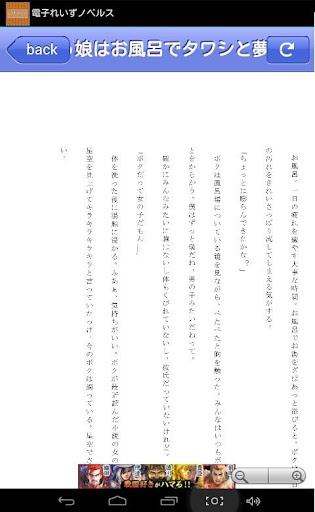 電子れいずノベルス
back
娘はお風呂でタワシと夢
お風呂。一日の疲れを癒やす大事な時間。お風呂でお湯をざばあっと浴びると、ボクは
の汚れをきれいさっぱり流してしまえる気がする。
「ちょっとは膨らんできたかな?」
ボクは風呂場についている鏡を見ながら、ぺたぺたと胸を触った。みんなはいつもボ
とをからかう。僕はずっと僕だね、男の子みたいだねって。
確かにみんなみたいに胸はないし体もくびれていないし、彼氏だっていないけれど。
「ボクだって女の子だもん――」
体を洗った後に湯船に浸かる。ふああ、気持ちがいい。ボクが最近読んだ小説の女の
星空を見上げてキラキラキラキラと言っていたっけ、今のボクは濁っている。星空でさ
い。
好きがハマる!!